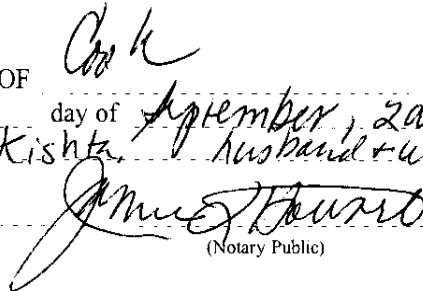 OF Cook
day of September, 20
Kishta, husband + w
(Notary Public)